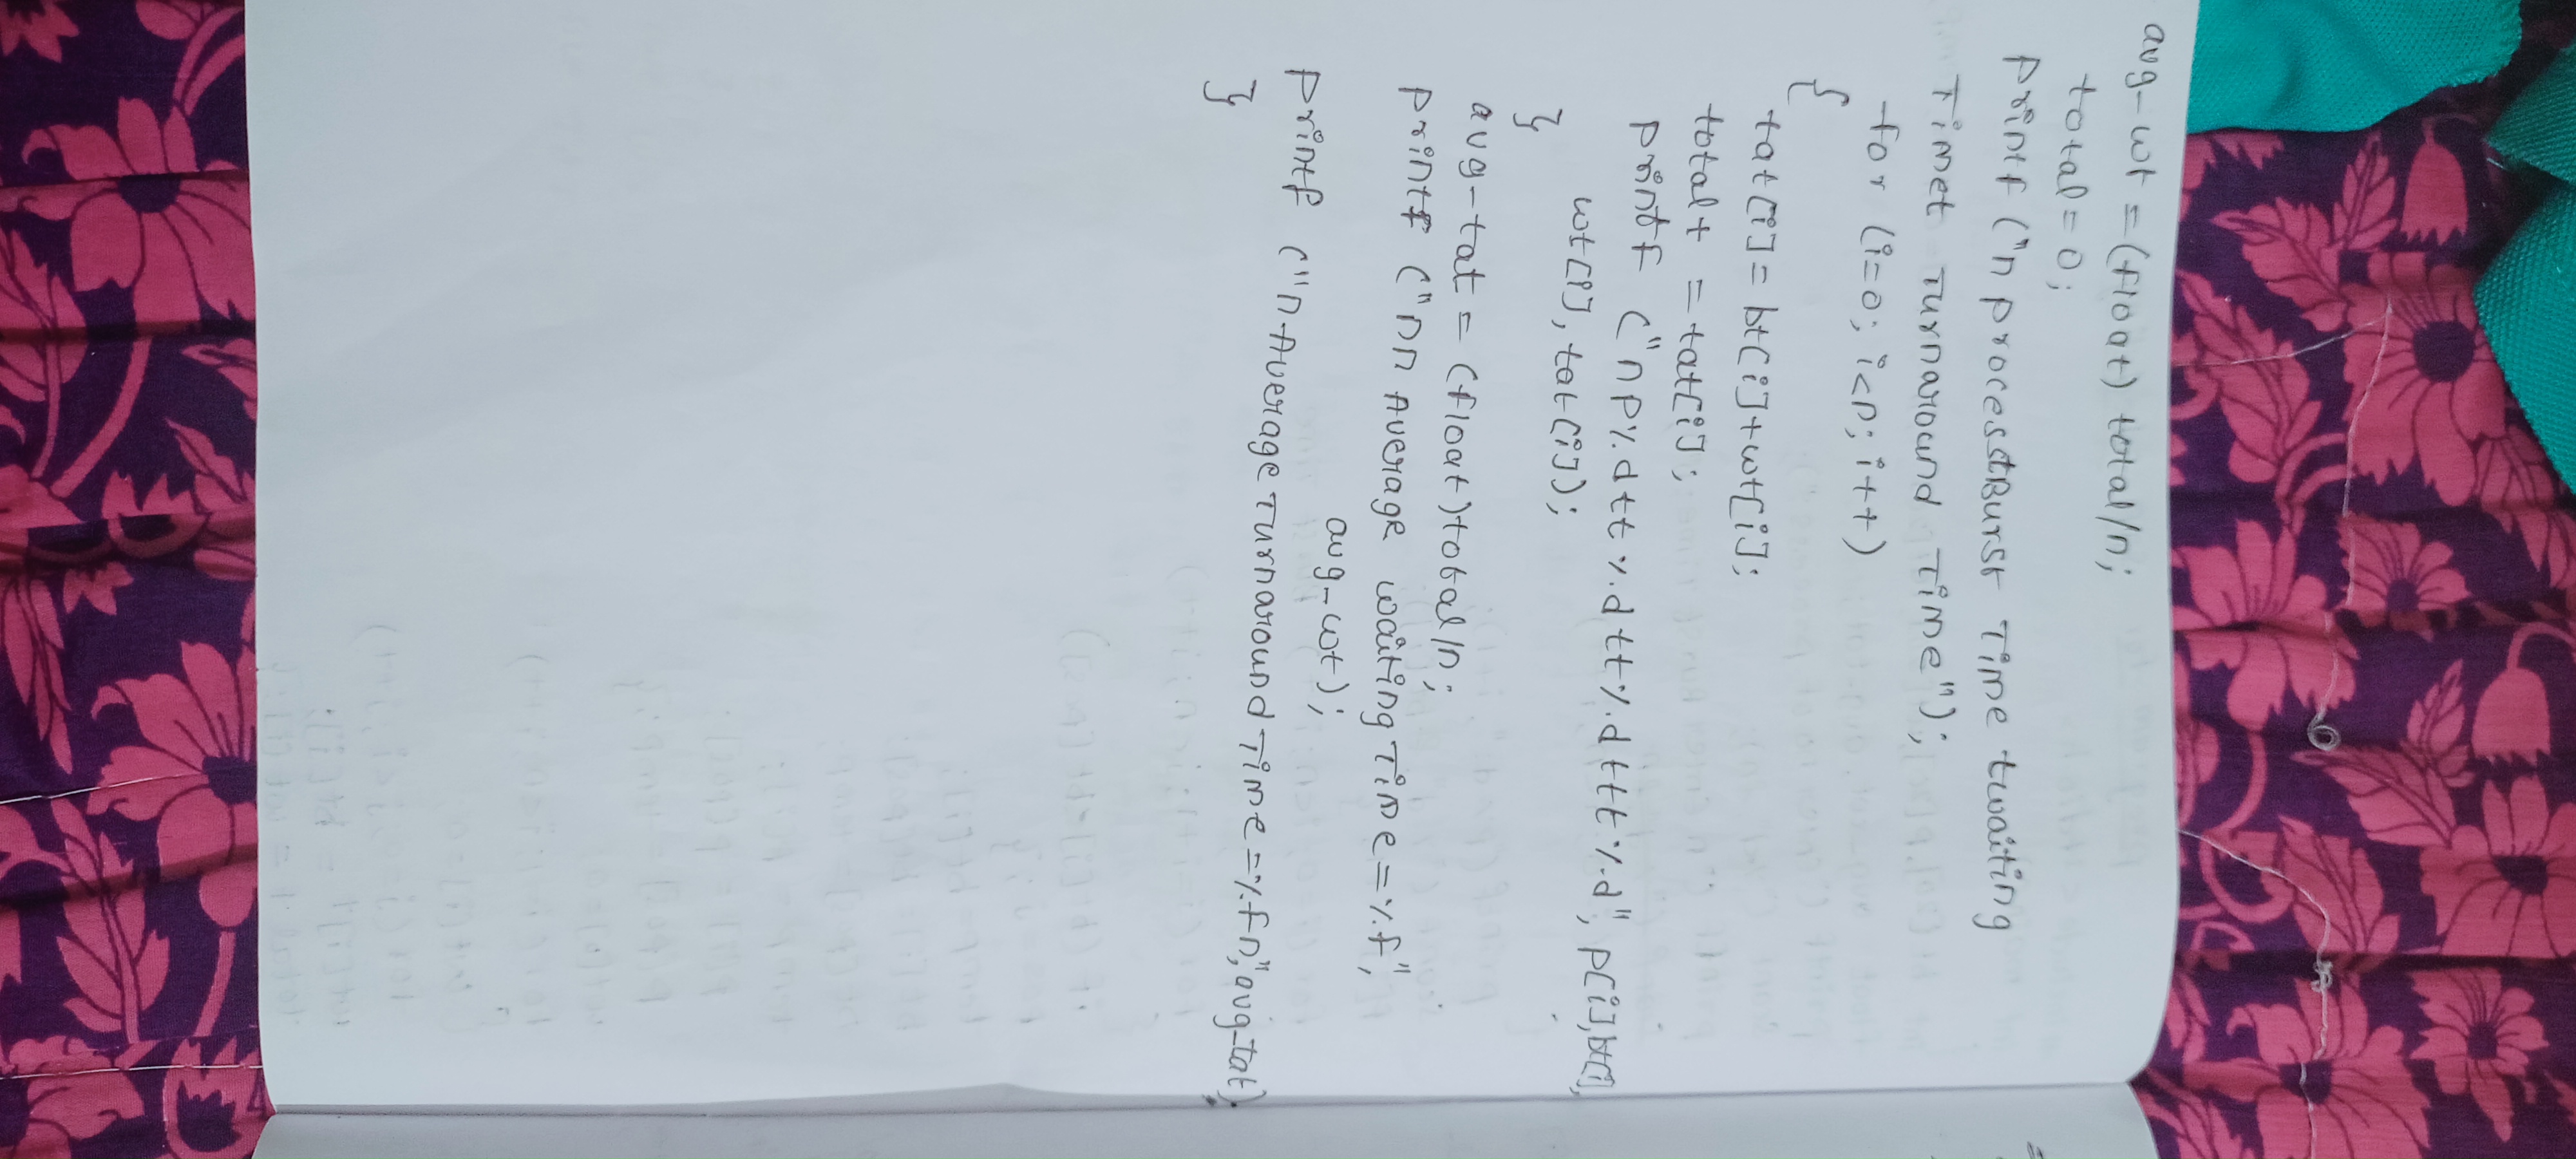 avg-wt =(float) total/n;
total=0;
printf ("n processtBurst Time twaiting
Timet Turnaround Time");
for (i=0; i<n; i++)
{
tat[i]= bt[i]+wt[i];
total+ =tat[i];
printf ("n p%.d tt %.d tt %.d ttt %.d", p[i],bt[i],
wt[i], tat[i]);
}
avg-tat = (float)total/n;
printf ("nn Average waiting Time=%.f",
avg-wt);
printf ("n Average Turnaround Time=%.fn",avg-tat);
}